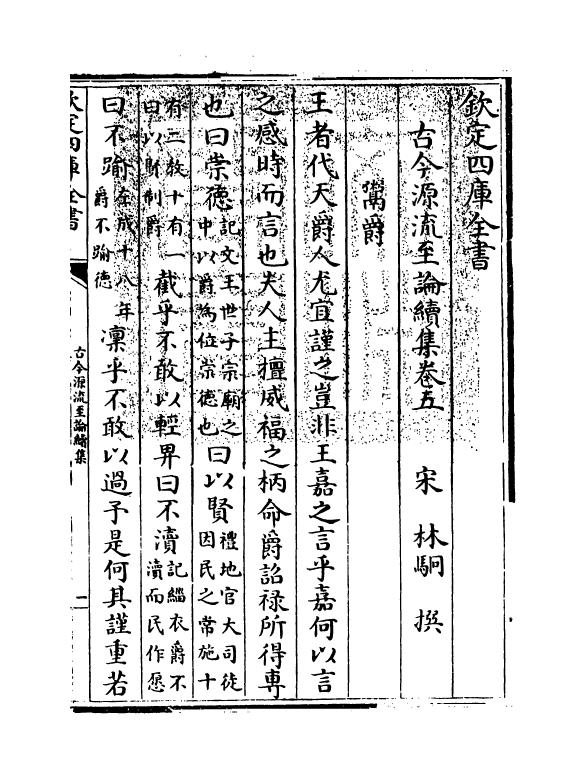 欽定四庫全書
古今源流至論續集卷五 宋 林駉 撰
鬻爵
王者代天爵人尤宜謹之豈非王嘉之言乎嘉何以言
之感時而言也夫人主擅威福之柄命爵詔祿所得專
也曰崇德記文王世子宗廟之中以爵為位崇德也曰以賢禮地官大司徒因民之常施十
有二教十有一曰以財制爵截乎不敢以輕畀曰不瀆記緇衣爵不瀆而民作愿
曰不踰在成十八年爵不踰德凜乎不敢以過予是何其謹重若
欽定四庫全書
古今源流至論續集